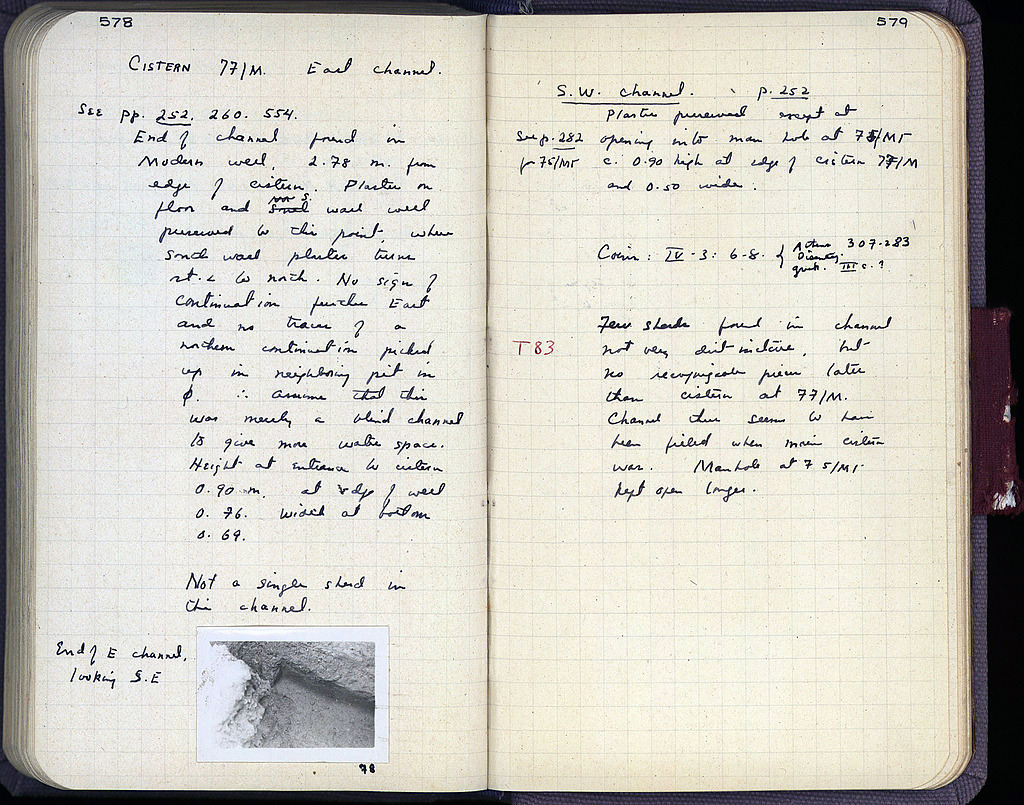 578
CISTERN 77/M. East channel.
SEE pp. 252. 260. 554.
End of channel found in
Modern well, 2.78 m. from
edge of cistern. Plaster on
floor and South wall well
preserved to this point, where
South wall plaster turns
rt. < to north. No sign of
continuation further East
and no trace of a
northern continuation picked
up in neighboring pit in
Φ. ∴ assume that this
was merely a blind channel
to give more water space.
Height at entrance to cistern
0.90 m. at edge of well
0.76. Width at bottom
0.69.
Not a single sherd in
this channel.
End of E channel,
looking S.E
78
579
S.W. channel. p. 252
Plaster preserved except at
See p. 282 opening into man hole at 75/ΜΓ
for 75/ΜΓ c. 0.90 high at edge of cistern 77/M
and 0.50 wide.
Coin: IV-3: 6-8. { Athens 307-283
Disinteg.
greek. III c.?
Few sherds found in channel
T 83 not very distinctive, but
no recognizable pieces later
than cistern at 77/M.
Channel thus seems to have
been filled when main cistern
was. Manhole at 75/ΜΓ
kept open longer.